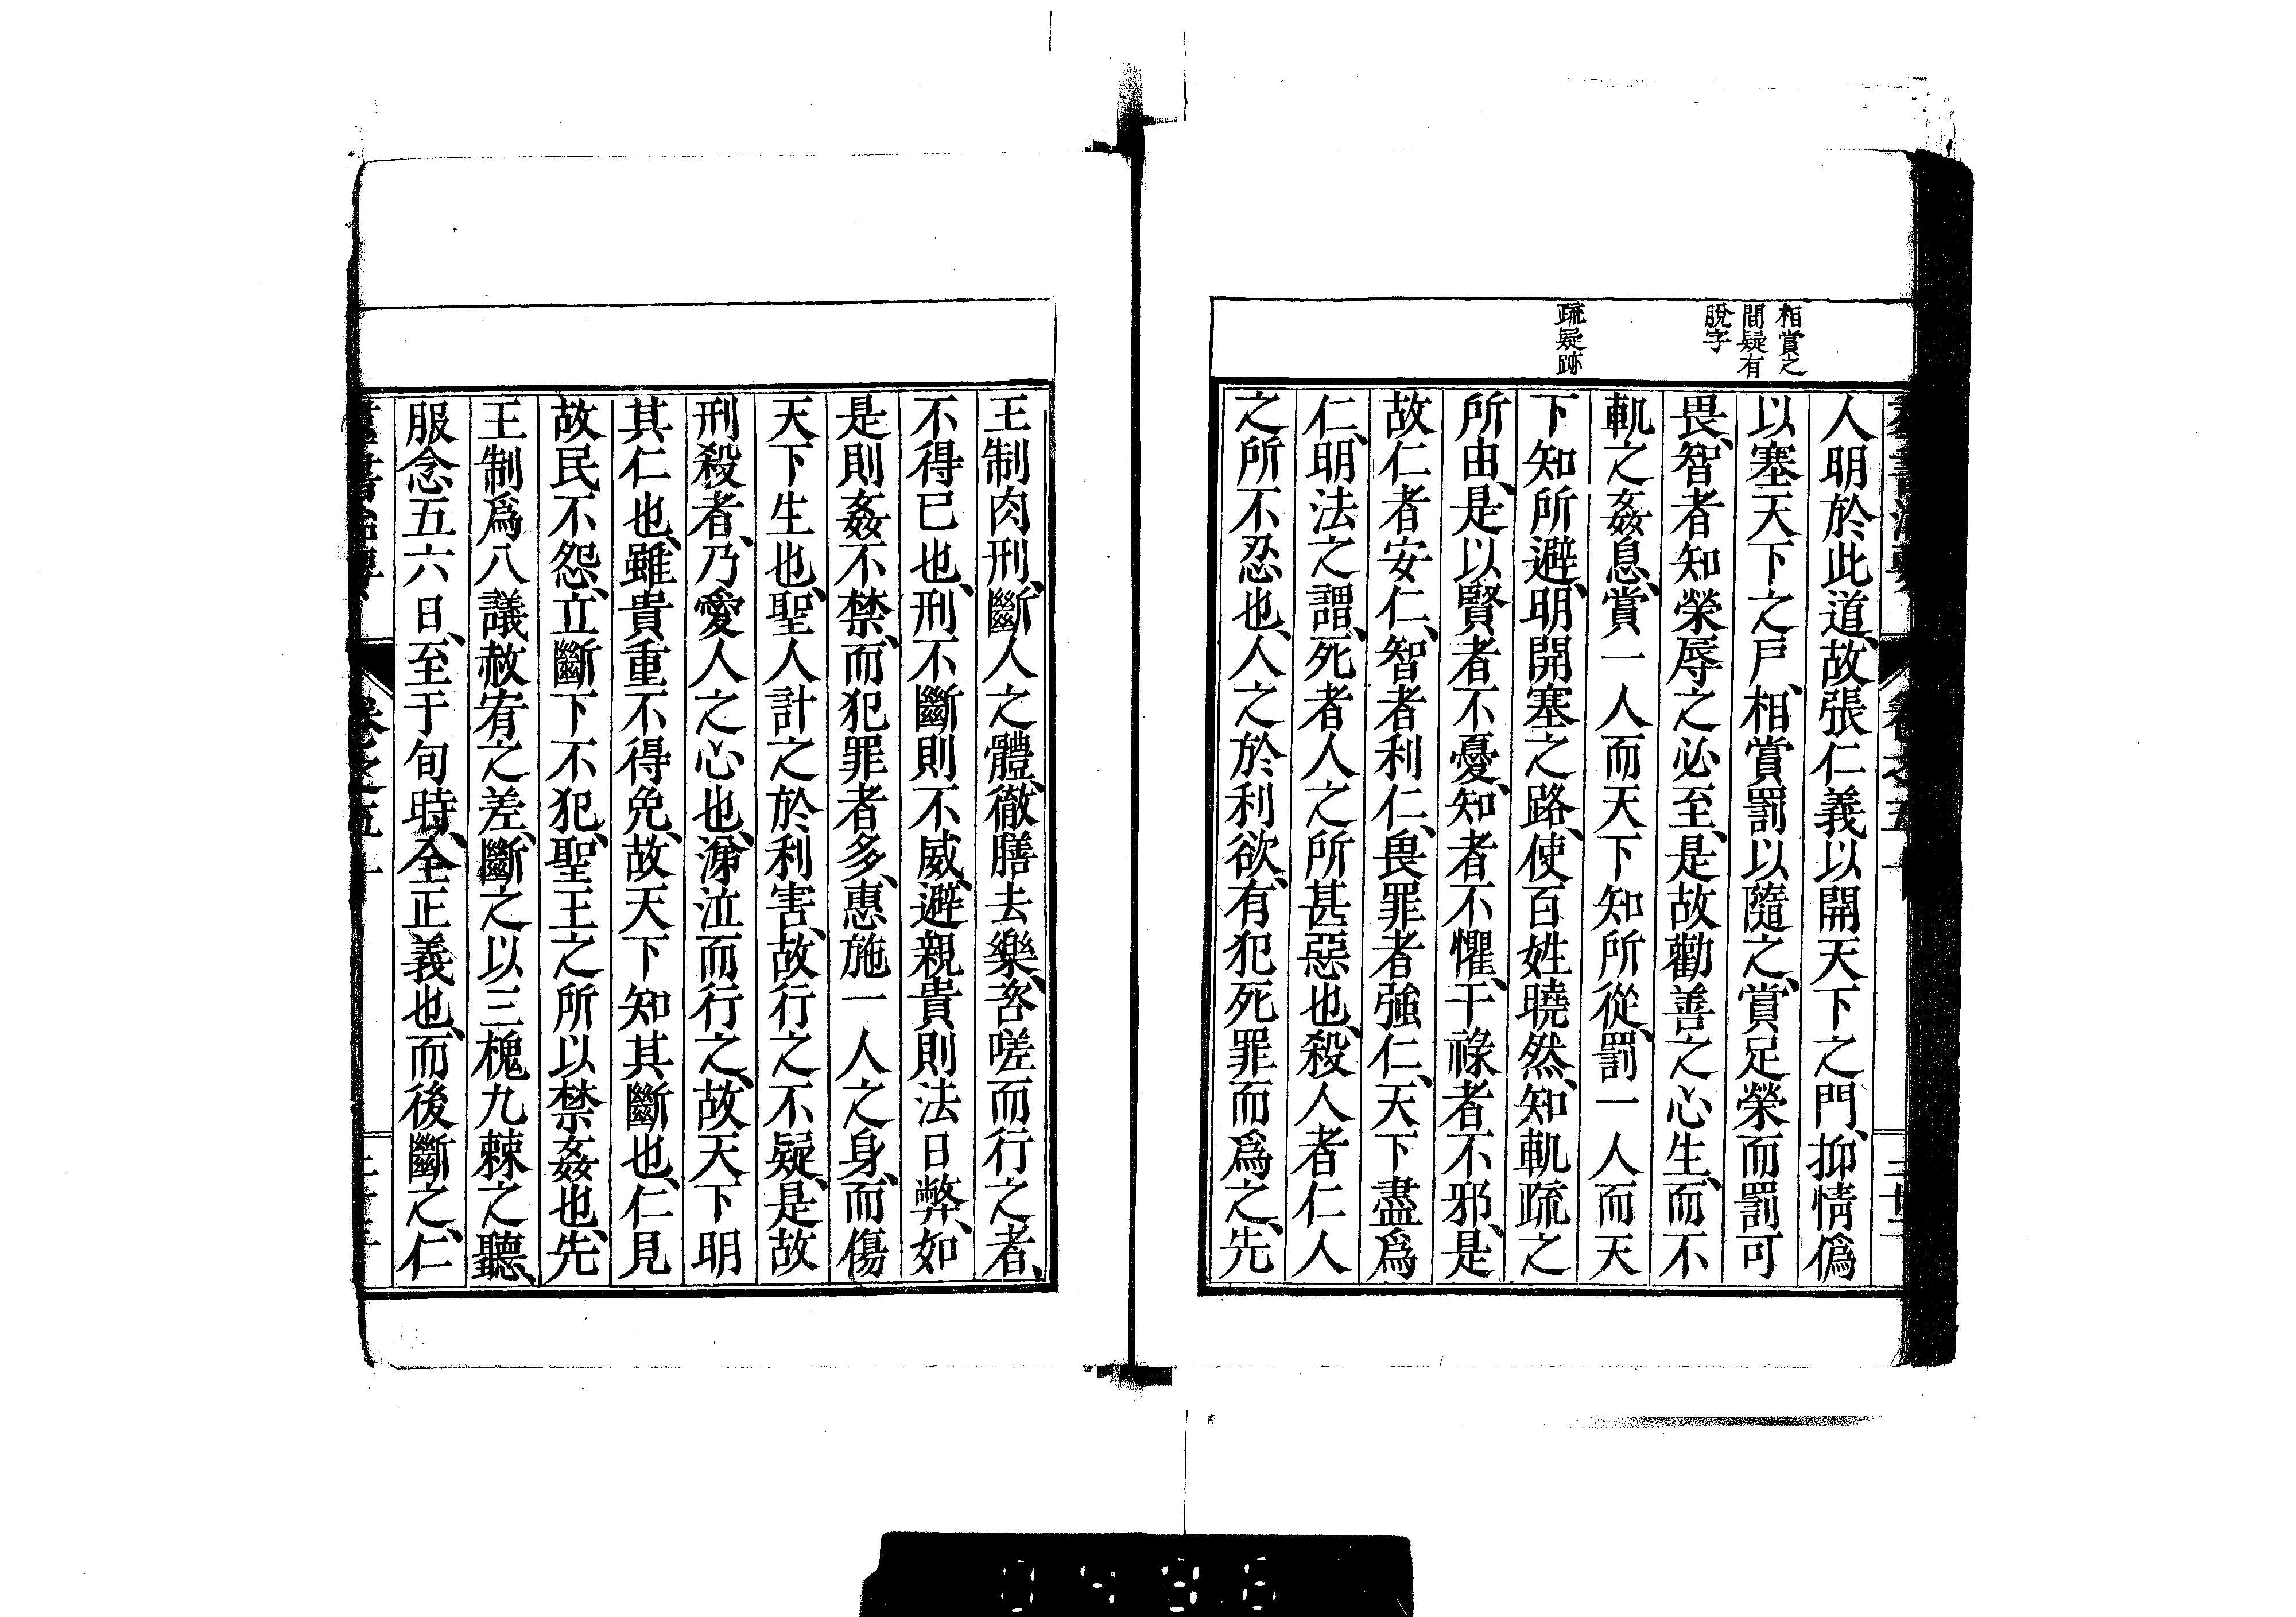 相賞之
間疑有
脫字
疏疑跡
人明於此道、故張仁義以開天下之門、抑情僞
以塞天下之戶、相賞罰以隨之、賞足榮而罰可
畏、智者知榮辱之必至、是故勸善之心生、而不
軌之姦息、賞一人而天下知所從、罰一人而天
下知所避、明開塞之路、使百姓曉然、知軌疏之
所由、是以賢者不憂、知者不懼、干祿者不邪、是
故仁者安仁、智者利仁、畏罪者強仁、天下盡爲
仁、明法之謂、死者人之所甚惡也、殺人者仁人
之所不忍也、人之於利欲、有犯死罪而爲之、先
王制肉刑、斷人之體、徹膳去樂、咨嗟而行之者、
不得已也、刑不斷則不威、避親貴則法日弊、如
是則姦不禁、而犯罪者多、惠施一人之身、而傷
天下生也、聖人計之於利害、故行之不疑、是故
刑殺者、乃愛人之心也、涕泣而行之、故天下明
其仁也、雖貴重不得免、故天下知其斷也、仁見
故民不怨、立斷下不犯、聖王之所以禁姦也、先
王制爲八議赦宥之差、斷之以三槐九棘之聽、
服念五六日、至于旬時、全正義也、而後斷之、仁